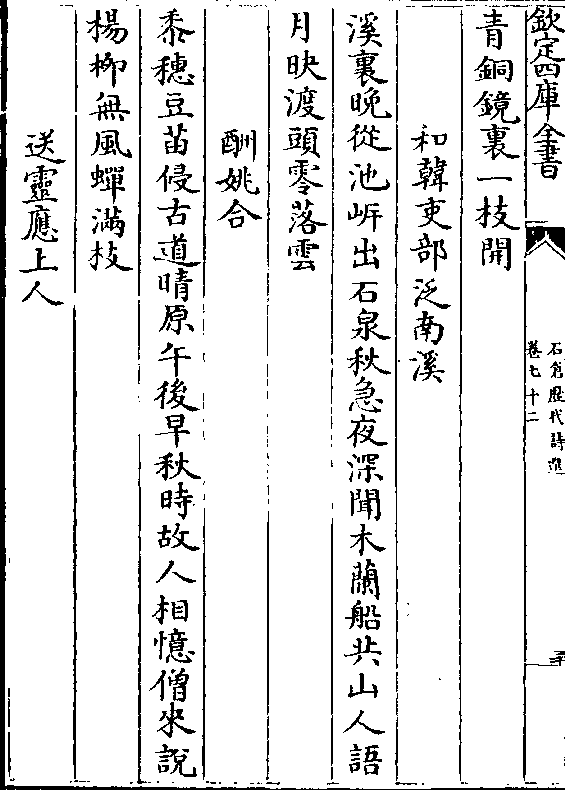 欽定四庫全書
石倉歷代詩選
卷七十二
青銅鏡裏一枝開
和韓吏部泛南溪
溪裏晚從池岍出石泉秋急夜深聞木蘭船共山人語
月映渡頭零落雲
酬姚合
黍穗豆苗侵古道晴原午後早秋時故人相憶僧來說
楊柳無風蟬滿枝
送靈應上人